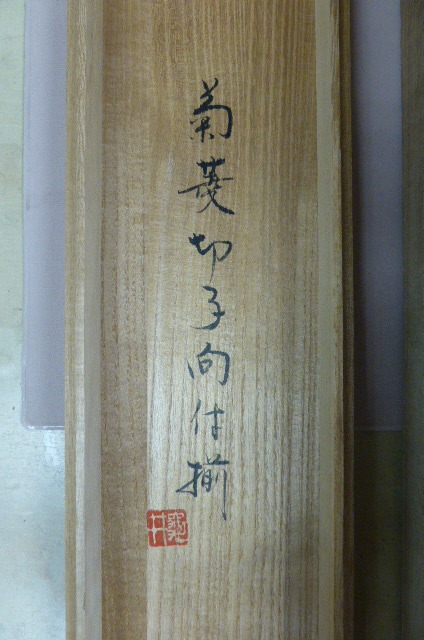 菊菱切子向付揃